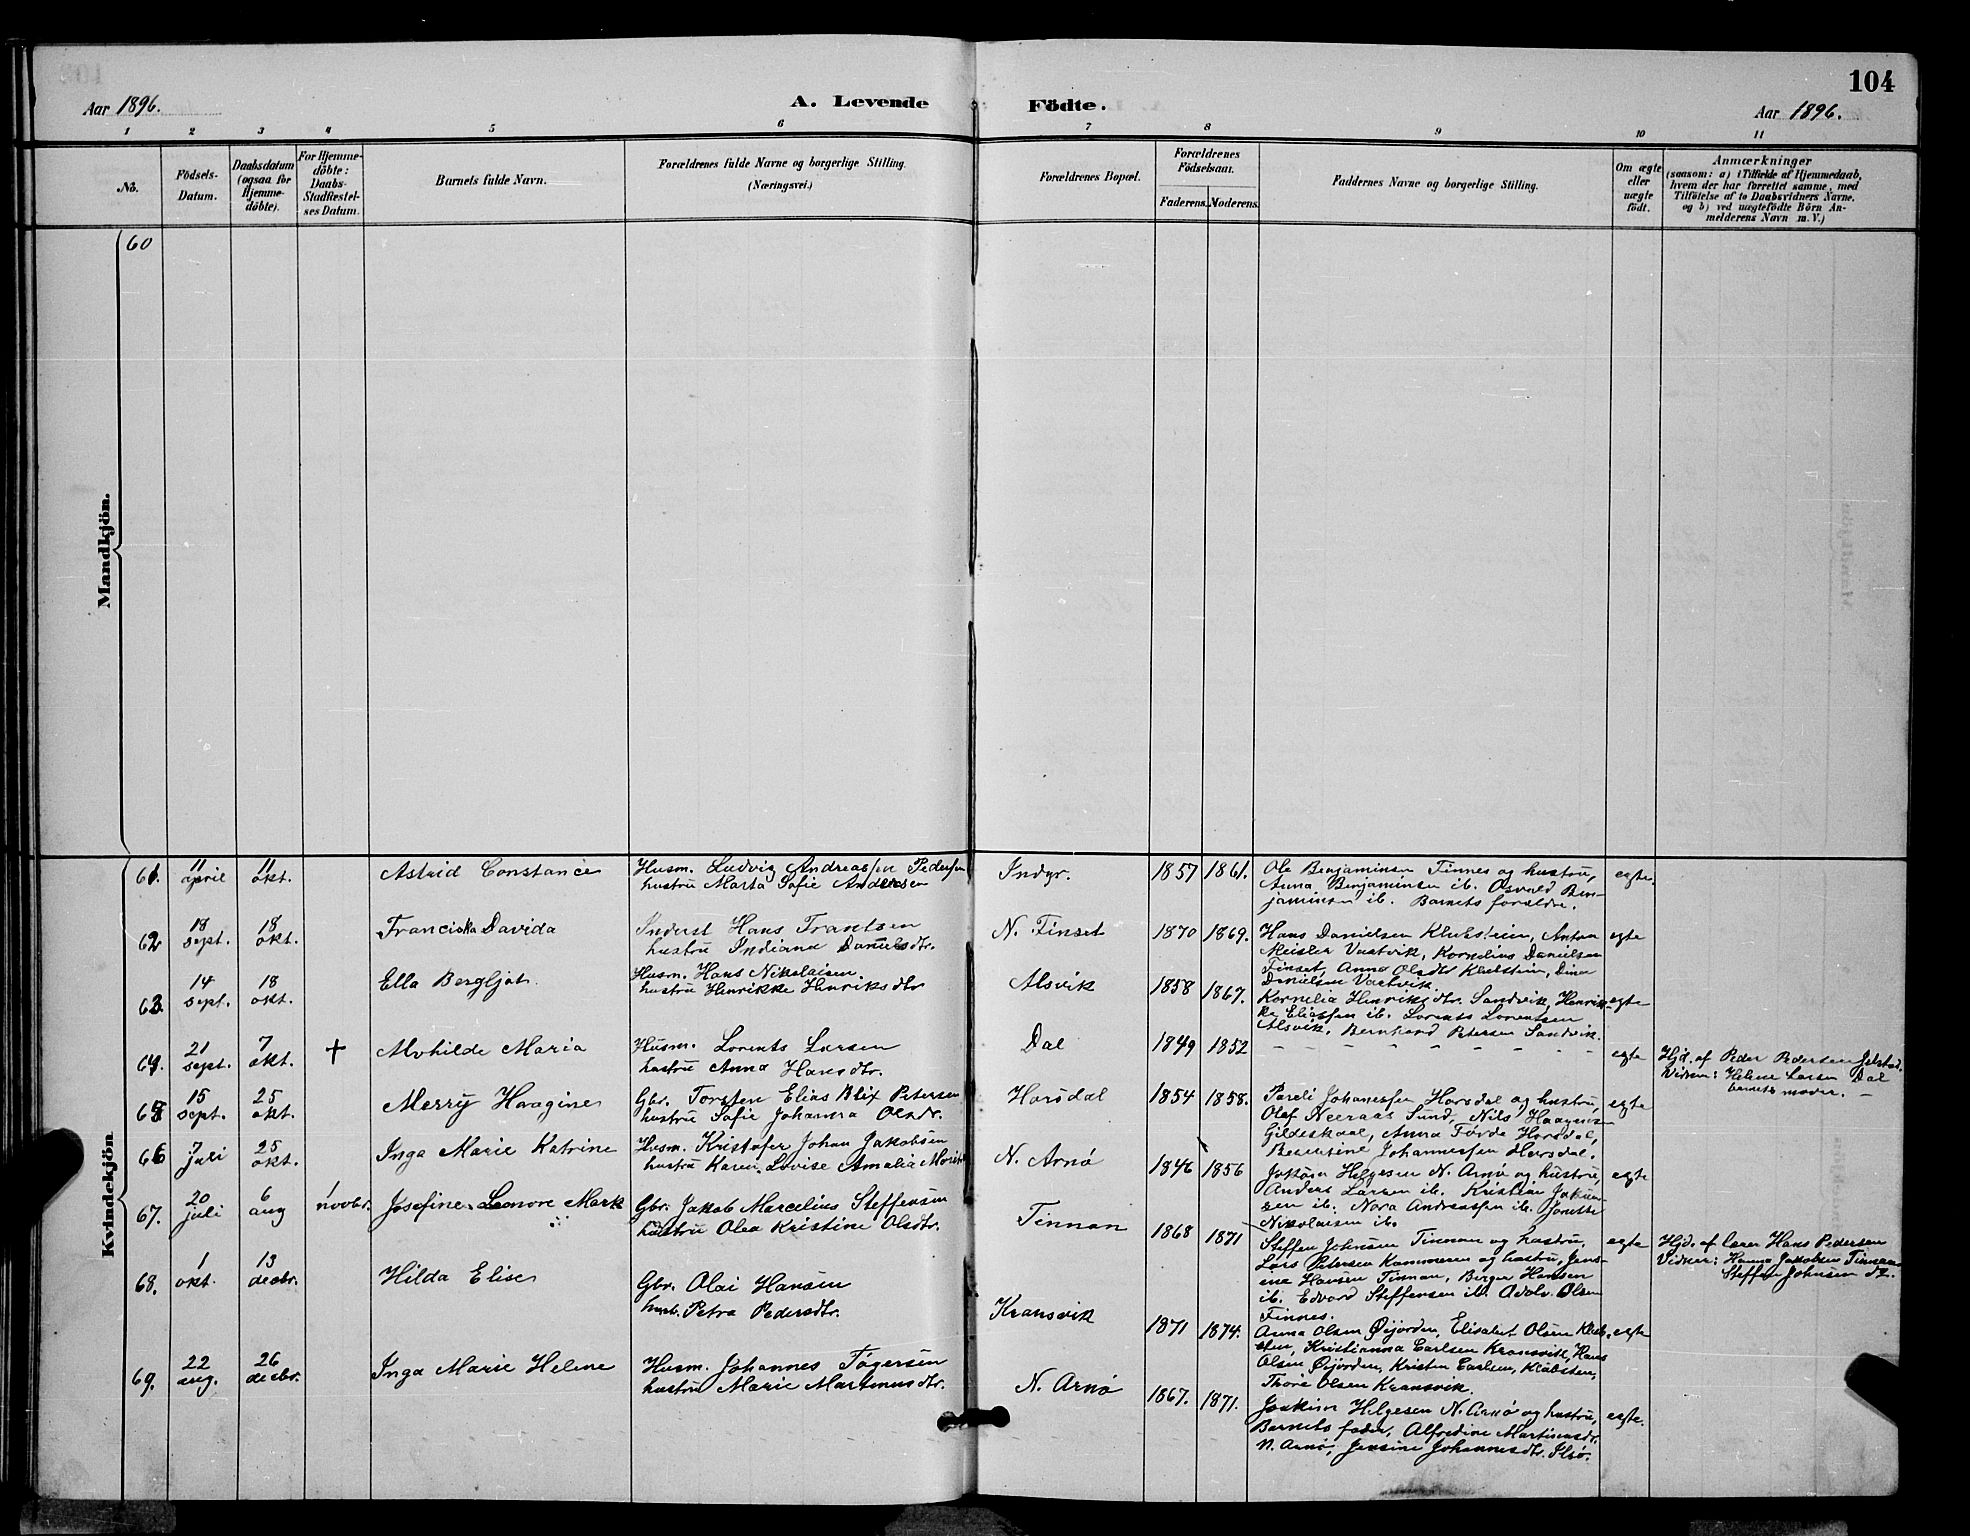 104
Aar 1896.
A. Levende Födte.
Aar 1896.
1 2 3 4 5 6 7 8 9 10 11
No.
Födsels-
Datum.
Daabsdatum
(ogsaa for
Hjemme-
döbte).
For Hjemme-
döbte:
Daabs-
Stadfæstel-
ses Datum.
Barnets fulde Navn.
Forældrenes fulde Navne og borgerlige Stilling.
(Næringsvei.)
Forældrenes Bopæl.
Forældrenes
Födselsaar.
Faderens. Moderens.
Faddernes Navne og borgerlige Stilling.
Om ægte
eller
uægte
födt.
Anmærkninger
(saasom: a) i Tilfælde af Hjemmedaab,
hvem der har forrettet samme, med
Tilföielse af to Daabsvidners Navne.
og b) ved uægtefödte Börn An-
melderens Navn m. V.)
Mandkjön.
60
Kvindekjön.
61. 11 april 11 okt. Astrid Constance
Husm. Ludvig Andreassen Pedersen
hustru Marta Sofie Andersen
Indgr. 1857 1861.
Ole Benjaminsen Finnes og hustru,
Anna Benjaminsen ib. Osvald Ben-
jaminsen ib. Barnets forældre.
egte.
62 18 sept. 18 okt. Franciska Davida
Inderst Hans Frantsen
hustru Indiana Danielsdtr.
N. Finset 1870 1869.
Hans Danielsen Klubstein, Anton
Meisler Vastvik, Kornelius Danielsen
Finset, Anna Olsdtr Klubstein, Dina
Danielsen Vastvik.
egte
63. 14 sept. 18 okt. Ella Bergljot.
Husm. Hans Nikolaisen.
hustru Henrikke Henriksdtr
Alsvik 1858 1867.
Kornelia Henriksdtr. Sandvik, Henrik-
ke Eliassen ib. Lorents Lorentsen
Alsvik, Bernhard Petersen Sandvik.
egte
64. 21 sept. 7 okt. + Alvhilde Maria
Husm. Lorents Larsen
hustru Anna Hansdtr.
Dal 1849 1852
- - - - - - - -
egte
Hjd. af Peder Pedersen Jelstad.
Vidner: Helene Larsen Dal
barnets moder. -
65 15 sept. 25 okt. Merry Haagine
Gbr. Torsten Elias Blix Petersen
hustru Sofie Johanna Olsdr.
Horsdal 1854 1858.
Pareli Johannessen Horsdal og hustru,
Olaf Neeraas Sund, Nils Haagensen
Gildeskaal, Anna Förde Horsdal,
Berntine Johannessen Horsdal.
egte
66 7 juli 25 okt. Inga Marie Katrine
Husm. Kristofer Johan Jakobsen
hustru Karen Lovise Amalia
N. Arnö 1846 1856
Joakim Helgesen N. Arnö og hustru,
Anders Larsen ib. Kristian
sen ib. Nora Andreassen ib. Jonette
Nikolaisen ib.
egte
67. 20 juli 6 aug 1 novbr. Josefine Leonore Mark
Gbr. Jakob Marcelius Steffensen
hustru Olea Kristine Olsdtr.
Finnan 1868 1871
Steffen Johnsen Finnan og hustru,
Lars Petersen Kammeren og hustru, Jens-
ine Hansen Finnan, Birger Hansen
ib. Edvard Steffensen ib. Adolv Olsen
Finnes.
egte
Hjd. af lærer Hans Pedersen
Vidner: Hanna Jakobsen Finnan
Steffen Johnsen do.
68. 1 okt. 13 decbr. Hilda Elise
Gbr. Olai Hansen
hust. Petra Pedersdtr.
Kransvik 1871 1874.
Anna Olsen Öijorden, Elisabet Olsen Klub-
sten, Kristianna Carlsen Kransvik, Hans
Olsen Öijorden, Kristen Carlsen, Klubsten,
Thore Olsen Kransvik.
egte
69. 22 aug. 26 decbr. Inga Marie Helene
Husm. Johannes Tögersen
hustru Marie Martinusdtr.
N. Arnö 1867. 1871.
Joakim Helgesen N. Arnö og hustru,
Barnets fader, Alfredine Martinusdr.
N. Arnö, Jensine Johannesdtr. Ilsö.
egte.